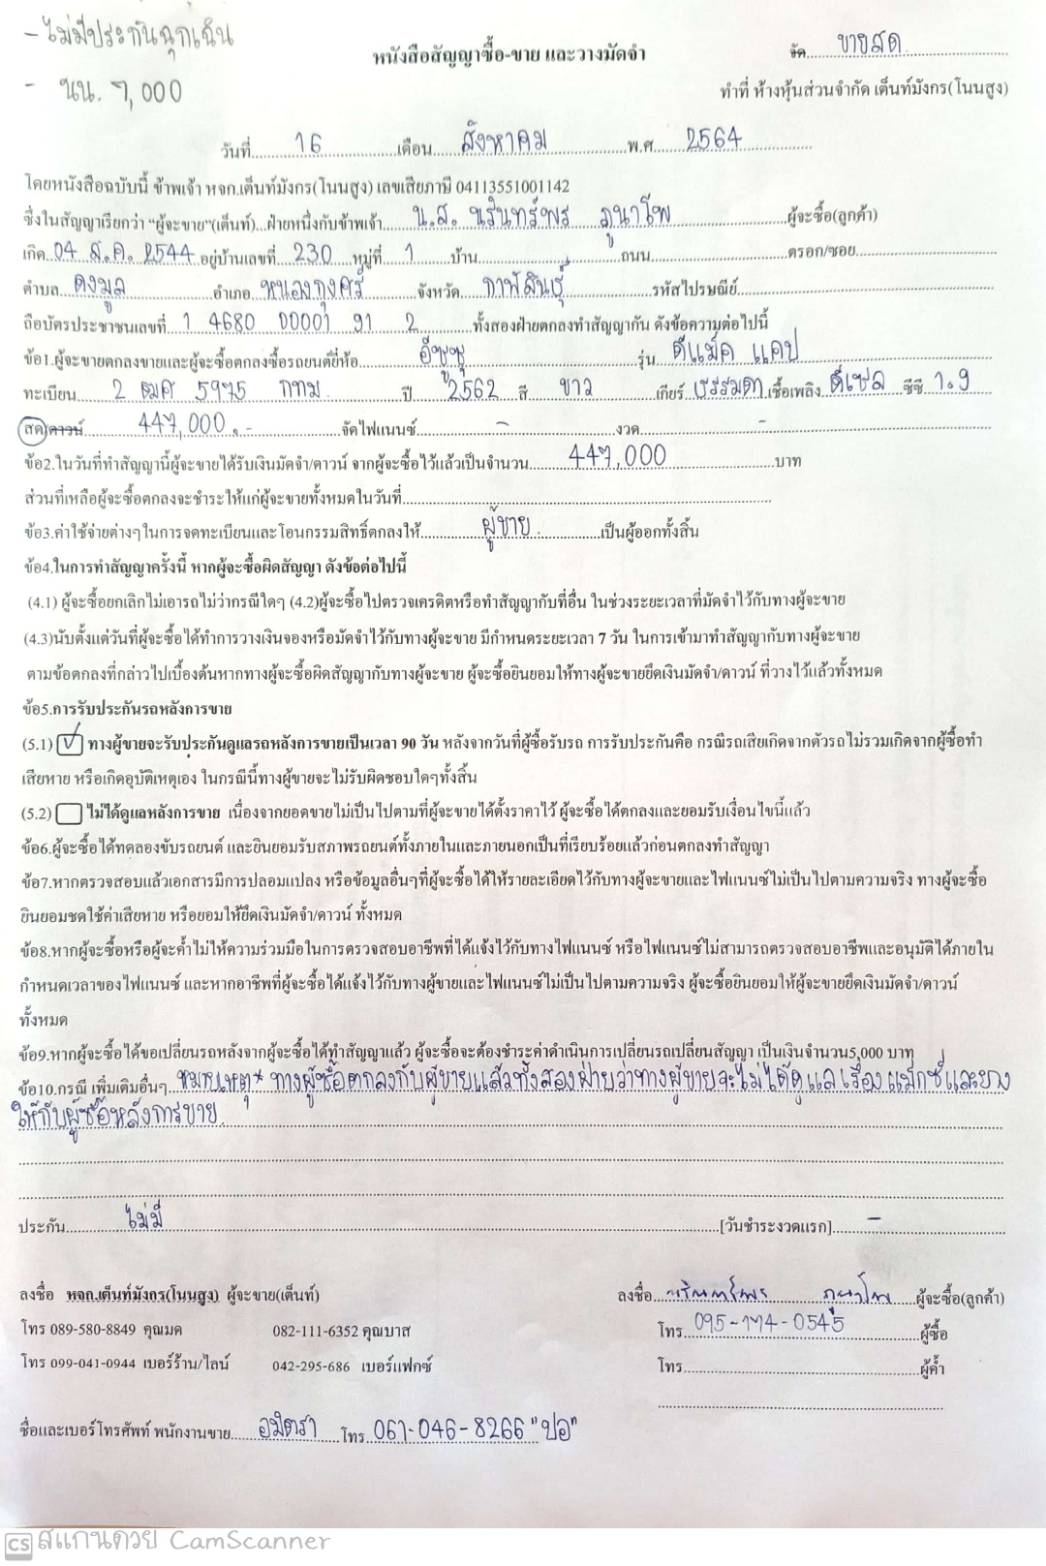 - ไม่มีประกันฉุกเฉิน
- นน. 7,000
หนังสือสัญญาซื้อ-ขาย และวางมัดจำ
จัด ขายสด
ทำที่ ห้างหุ้นส่วนจำกัด เต็นท์มังกร(โนนสูง)
วันที่ 16 เดือน สิงหาคม พ.ศ 2564
โดยหนังสือฉบับนี้ ข้าพเจ้า หจก.เต็นท์มังกร(โนนสูง) เลขเสียภาษี 04113551001142
ซึ่งในสัญญาเรียกว่า "ผู้จะขาย"(เต็นท์)...ฝ่ายหนึ่งกับข้าพเจ้า น.ส. นรินทร์พร ภูนาโพ ผู้จะซื้อ(ลูกค้า)
เกิด 04 ส.ค. 2544 อยู่บ้านเลขที่ 230 หมู่ที่ 1 บ้าน ถนน ตรอก/ซอย
ตำบล ดงมูล อำเภอ หนองกุงศรี จังหวัด กาฬสินธุ์ รหัสไปรษณีย์
ถือบัตรประชาชนเลขที่ 1 4680 00001 91 2 ทั้งสองฝ่ายตกลงทำสัญญากัน ดังข้อความต่อไปนี้
ข้อ1.ผู้จะขายตกลงขายและผู้จะซื้อตกลงซื้อรถยนต์ยี่ห้อ อีซูซุ รุ่น ดีแม็ค แคป
ทะเบียน 2 ฒศ 5975 กทม ปี 2562 สี ขาว เกียร์ ธรรมดา เชื้อเพลิง ดีเซล ซีซี 1.9
สด/ดาวน์ 447,000.- จัดไฟแนนซ์ - งวด -
ข้อ2.ในวันที่ทำสัญญานี้ผู้จะขายได้รับเงินมัดจำ/ดาวน์ จากผู้จะซื้อไว้แล้วเป็นจำนวน 447,000 บาท
ส่วนที่เหลือผู้จะซื้อตกลงจะชำระให้แก่ผู้จะขายทั้งหมดในวันที่
ข้อ3.ค่าใช้จ่ายต่างๆในการจดทะเบียนและโอนกรรมสิทธิ์ตกลงให้ ผู้ขาย เป็นผู้ออกทั้งสิ้น
ข้อ4.ในการทำสัญญาครั้งนี้ หากผู้จะซื้อผิดสัญญา ดังข้อต่อไปนี้
(4.1) ผู้จะซื้อยกเลิกไม่เอารถไม่ว่ากรณีใดๆ (4.2)ผู้จะซื้อไปตรวจเครดิตหรือทำสัญญากับที่อื่น ในช่วงระยะเวลาที่มัดจำไว้กับทางผู้จะขาย
(4.3)นับตั้งแต่วันที่ผู้จะซื้อได้ทำการวางเงินจองหรือมัดจำไว้กับทางผู้จะขาย มีกำหนดระยะเวลา 7 วัน ในการเข้ามาทำสัญญากับทางผู้จะขาย
ตามข้อตกลงที่กล่าวไปเบื้องต้นหากทางผู้จะซื้อผิดสัญญากับทางผู้จะขาย ผู้จะซื้อยินยอมให้ทางผู้จะขายยึดเงินมัดจำ/ดาวน์ ที่วางไว้แล้วทั้งหมด
ข้อ5.การรับประกันรถหลังการขาย
(5.1) ✓ ทางผู้ขายจะรับประกันดูแลรถหลังการขายเป็นเวลา 90 วัน หลังจากวันที่ผู้ซื้อรับรถ การรับประกันคือ กรณีรถเสียเกิดจากตัวรถไม่รวมเกิดจากผู้ซื้อทำ
เสียหาย หรือเกิดอุบัติเหตุเอง ในกรณีนี้ทางผู้ขายจะไม่รับผิดชอบใดๆทั้งสิ้น
(5.2) ไม่ได้ดูแลหลังการขาย เนื่องจากยอดขายไม่เป็นไปตามที่ผู้จะขายได้ตั้งราคาไว้ ผู้จะซื้อได้ตกลงและยอมรับเงื่อนไขนี้แล้ว
ข้อ6.ผู้จะซื้อได้ทดลองขับรถยนต์ และยินยอมรับสภาพรถยนต์ทั้งภายในและภายนอกเป็นที่เรียบร้อยแล้วก่อนตกลงทำสัญญา
ข้อ7.หากตรวจสอบแล้วเอกสารมีการปลอมแปลง หรือข้อมูลอื่นๆที่ผู้จะซื้อได้ให้รายละเอียดไว้กับทางผู้จะขายและไฟแนนซ์ไม่เป็นไปตามความจริง ทางผู้จะซื้อ
ยินยอมชดใช้ค่าเสียหาย หรือยอมให้ยึดเงินมัดจำ/ดาวน์ ทั้งหมด
ข้อ8.หากผู้จะซื้อหรือผู้จะค้ำไม่ให้ความร่วมมือในการตรวจสอบอาชีพที่ได้แจ้งไว้กับทางไฟแนนซ์ หรือไฟแนนซ์ไม่สามารถตรวจสอบอาชีพและอนุมัติได้ภายใน
กำหนดเวลาของไฟแนนซ์ และหากอาชีพที่ผู้จะซื้อได้แจ้งไว้กับทางผู้ขายและไฟแนนซ์ไม่เป็นไปตามความจริง ผู้จะซื้อยินยอมให้ผู้จะขายยึดเงินมัดจำ/ดาวน์
ทั้งหมด
ข้อ9.หากผู้จะซื้อได้ขอเปลี่ยนรถหลังจากผู้จะซื้อได้ทำสัญญาแล้ว ผู้จะซื้อจะต้องชำระค่าดำเนินการเปลี่ยนรถเปลี่ยนสัญญา เป็นเงินจำนวน5,000 บาท
ข้อ10.กรณี เพิ่มเติมอื่นๆ หมายเหตุ* ทางผู้ซื้อตกลงกับผู้ขายแล้วทั้งสองฝ่ายว่าทางผู้ขายจะไม่ได้ดูแลเรื่องแม็กซ์และยาง
ให้กับผู้ซื้อหลังการขาย
ประกัน ไม่มี [วันชำระงวดแรก] -
ลงชื่อ หจก.เต็นท์มังกร(โนนสูง) ผู้จะขาย(เต็นท์) ลงชื่อ นรินทร์พร ภูนาโพ ผู้จะซื้อ(ลูกค้า)
โทร 089-580-8849 คุณมด 082-111-6352 คุณบาส โทร 095-174-0545 ผู้ซื้อ
โทร 099-041-0944 เบอร์ร้าน/ไลน์ 042-295-686 เบอร์แฟกซ์ โทร ผู้ค้ำ
ชื่อและเบอร์โทรศัพท์ พนักงานขาย อมิตรา โทร 061-046-8266 "ปอ"
CS สแกนด้วย CamScanner